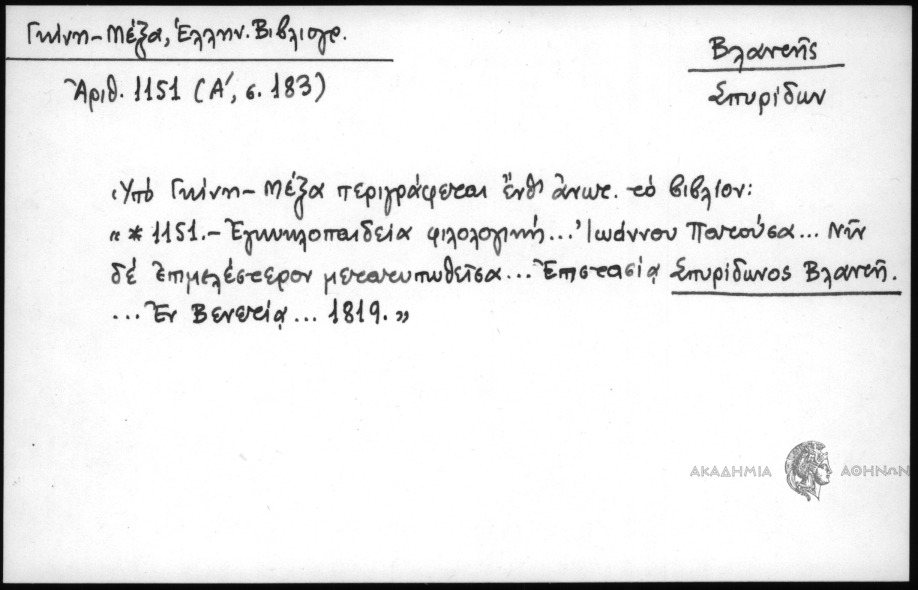 Γκίνη-Μέξα, Ἑλλην. Βιβλιογρ.
Ἀριθ. 1151 (Α΄, σ. 183)
Βλαντῆς
Σπυρίδων
Ὑπό Γκίνη-Μέξα περιγράφεται ἔνθ' ἀνωτ. τό βιβλίον:
«* 1151.- Ἐγκυκλοπαιδεία φιλολογική... Ἰωάννου Πατούσα... Νῦν
δέ ἐπιμελέστερον μετατυπωθεῖσα... Ἐπιστασίᾳ Σπυρίδωνος Βλαντῆ.
... Ἐν Βενετίᾳ... 1819.»
ΑΚΑΔΗΜΙΑ ΑΘΗΝΩΝ